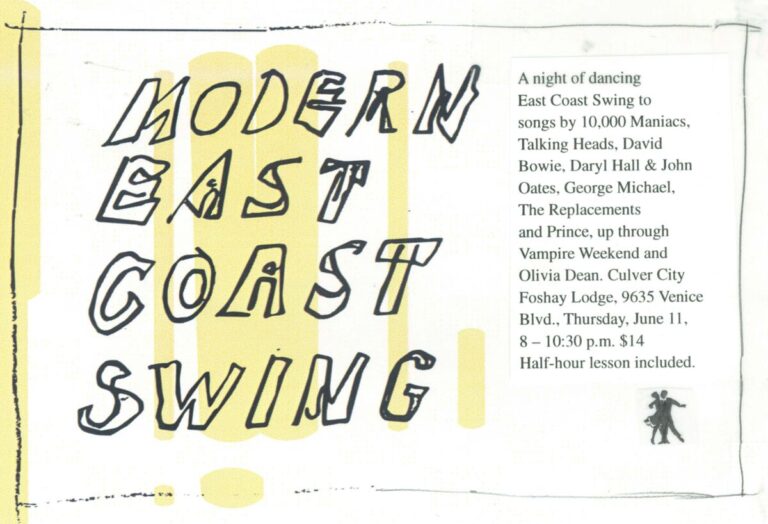 MODERN
EAST
COAST
SWING
A night of dancing
East Coast Swing to
songs by 10,000 Maniacs,
Talking Heads, David
Bowie, Daryl Hall & John
Oates, George Michael,
The Replacements
and Prince, up through
Vampire Weekend and
Olivia Dean. Culver City
Foshay Lodge, 9635 Venice
Blvd., Thursday, June 11,
8 – 10:30 p.m. $14
Half-hour lesson included.